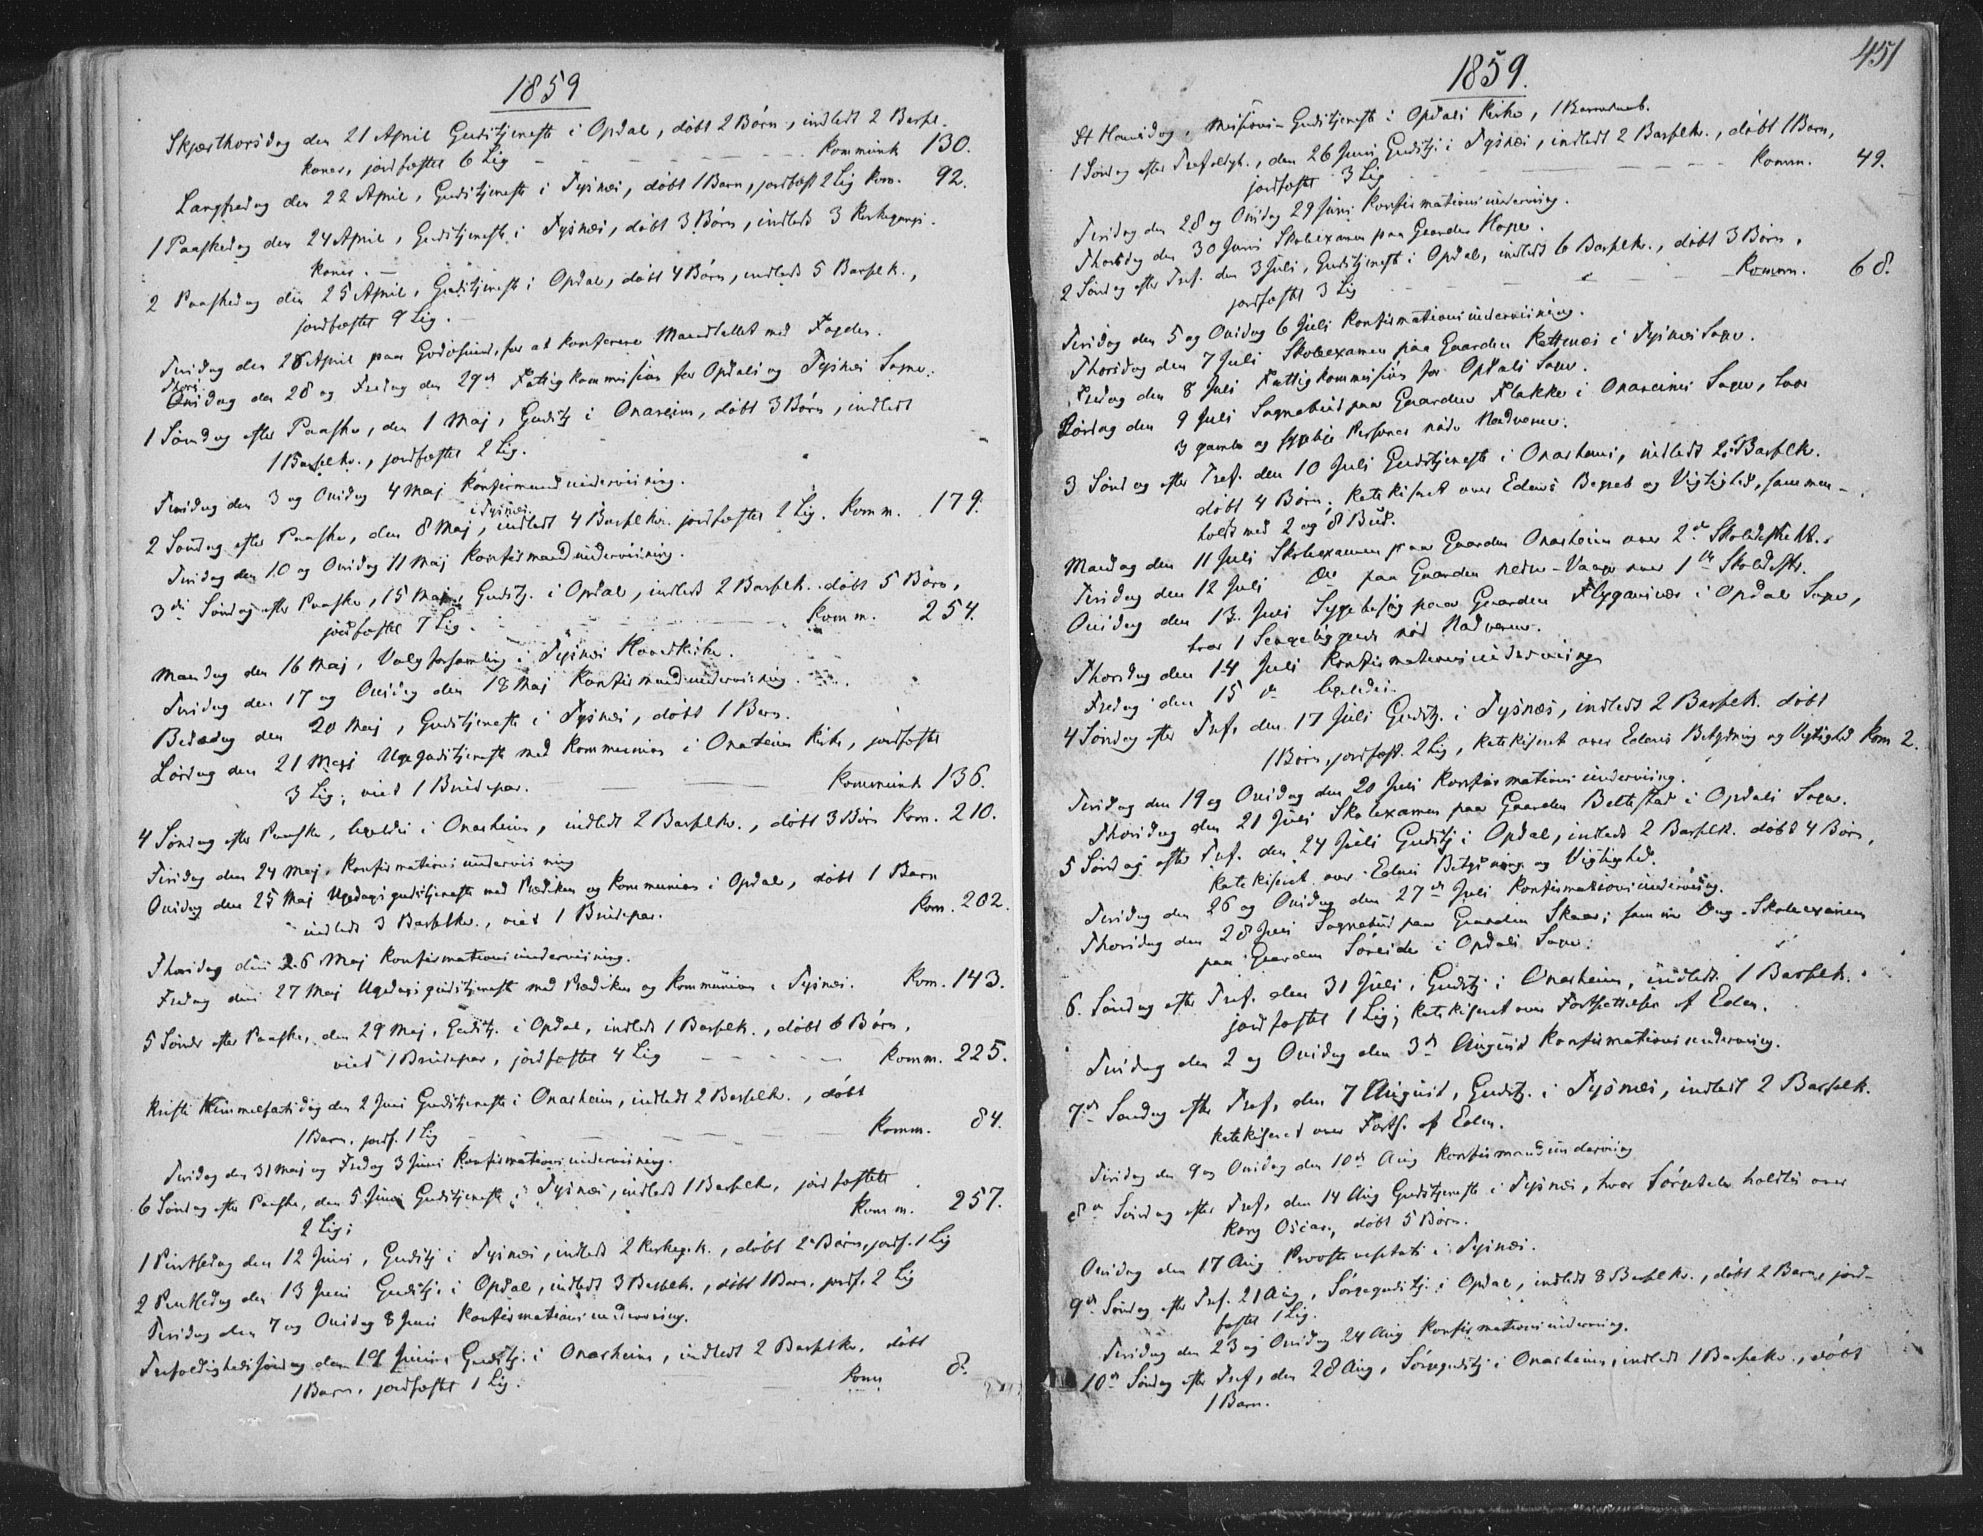 1859
Skjærthorsdag den 21 April Gudstjeneste i Opdal, døbt 2 Børn, indledt 2 Barsel-
koner, jordfæstet 6 Lig - - - Kommunik 130.
Langfredag den 22 April, Gudstjeneste i Tysnæs, døbt 1 Barn, jordfæst 2 Lig Kom. 92.
1 Paaskedag den 24 April, Gudstjeneste i Tysnæs, døbt 3 Børn, indledt 3 Kirkegangs-
koner. -
2 Paaskedag den 25 April, Gudstjeneste i Opdal, døbt 4 Børn, indledt 5 Barselk.,
jordfæstet 9 Lig. -
Tirsdag den 26 April paa Godøsund, for at konferere Mandtallet med Fogden.
Thors
Onsdag den 28 og Fredag den 29de Fattigkommission for Opdals og Tysnæs Sogne.
1 Søndag efter Paaske, den 1 Maj, Gudstj i Onareim, døbt 3 Børn, indledt
1 Barselko., jordfæstet 2 Lig.
Tirsdag den 3 og Onsdag 4 Maj Konfirmandunderviisning.
i Tysnæs
2 Søndag efter Paaske, den 8 Maj, indledt 4 Barselko. jordfæstet 2 Lig. Komm. 179.
Tirsdag den 10 og Onsdag 11 Maj Konfirmandunderviisning.
3die Søndag efter Paaske, 15 Maj, Gudstj. i Opdal, indledt 2 Barselk. døbt 5 Børn,
jordfæstet 7 Lig. - - - Komm. 254.
Mandag den 16 Maj, Valgforsamling i Tysnæs Hovedkirke.
Tirsdag den 17 og Onsdag den 18 Maj Konfirmandunderviisning.
Bededag den 20 Maj, Gudstjeneste i Tysnæs, døbt 1 Barn.
Lørdag den 21 Maj Ugegudstjeneste med Kommunion i Onareim Kirke, jordfæstet
3 Lig; viet 1 Brudepar. - - Kommunik 136.
4 Søndag efter Paaske, ligeledes i Onarheim, indledt 2 Barselko., døbt 3 Børn Kom. 210.
Tirsdag den 24 Maj, Konfirmationsunderviisning
Onsdag den 25 Maj Ugedagsgudstjeneste med Prædiken og Kommunion i Opdal, døbt 1 Barn
indledt 3 Barselko., viet 1 Brudepar. Kom. 202.
Thorsdag den 26 Maj Konfirmationsunderviisning.
Fredag den 27 Maj Ugedagsgudstjeneste med Prædiken og Kommunion i Tysnæs. Kom. 143.
5 Søndag efter Paaske, den 29 Maj, Gudstj. i Opdal, indledt 1 Barselk., døbt 6 Børn,
viet 1 Brudepar, jordfæstet 4 Lig - - - Komm. 225.
Kristi Himmelfartsdag den 2 Juni Gudstjeneste i Onarheim, indledt 2 Barselko., døbt
1 Barn, jordf. 1 Lig - - - Komm. 84.
Tirsdag den 31 Maj og Fredag 3 Juni Konfirmationsunderviisning.
6 Søndag efter Paaske, den 5 Juni Gudstjeneste i Tysnæs, indledt 1 Barselko, jordfæstet
2 Lig; Komm. 257.
1 Pintsedag den 12 Juni, Gudstj i Tysnæs, indledt 2 Kirkegk., døbt 2 Børn, jordf. 1 Lig
2 Pintsedag den 13 Juni Gudstj. i Opdal, indledt 3 Barselk., døbt 1 Barn, jordf. 2 Lig
Tirsdag den 7 og Onsdag 8 Juni Konfirmationsunderviisning.
Trefoldighedssøndag den 19 Juni, Gudstj. i Onarheim, indledt 2 Barselko. døbt
1 Barn, jordfæstet 1 Lig. Kom 8.
1859.
451
St Hansdag, Missions-Gudstjeneste i Opdals Kirke, 1 Barnedaab.
1 Søndag efter Trefoldigh., den 26 Juni Gudstj. i Tysnæs, indledt 2 Barselk., døbt 1 Barn,
jordfæstet 3 Lig - - - Komm. 49.
Tirsdag den 28 og Onsdag 29 Juni Konfirmationsunderviisning.
Thorsdag den 30 Juni Skoleexamen paa Gaarden Hope.
2 Søndag efter Tref. den 3 Juli, Gudstjeneste i Opdal, indledt 6 Barselk., døbt 3 Børn,
jordfæstet 3 Lig - - - Komm. 68.
Tirsdag den 5 og Onsdag 6 Juli Konfirmationsunderviisning.
Thorsdag den 7 Juli Skoleexamen paa Gaarden Rettenæs i Tysnæs Sogn.
Fredag den 8 Juli Fattigkommission for Opdals Sogn.
Lørdag den 9 Juli Sognebud paa Gaarden Flakke i Onareims Sogn, hvor
3 gamle og sygelige Personer nøde Nadveren.
3 Søndag efter Tref. den 10 Juli Gudstjeneste i Onarheim, indledt 2 Barselk.
døbt 4 Børn; katekiseret over Edens Begreb og Vigtighed, sammen-
holdt med 2 og 8 Bud.
Mandag den 11 Juli Skoleexamen paa Gaarden Onarheim over 2det Skoledistrikt.
Tirsdag den 12 Juli do paa Gaarden Nedre-Vaage over 1ste Skoledistr.
Onsdag den 13 Juli Sygebesøg paa Gaarden Flygansvær i Opdal Sogn,
hvor 1 Sengeliggende nød Nadveren.
Thorsdag den 14 Juli Konfirmationsunderviisning
Fredag den 15 de ligeledes.
4 Søndag efter Tref. den 17 Juli Gudstj. i Tysnæs, indledt 2 Barselk. døbt
1 Børn, jordfæst. 2 Lig, katekiseret over Edens Betydning og Vigtighed Kom 2.
Tirsdag den 19 og Onsdag den 20 Juli Konfirmationsunderviisning.
Thorsdag den 21 Juli Skoleexamen paa Gaarden Beltestad i Opdals Sogn.
5 Søndag efter Tref. den 24 Juli Gudstj i Opdal, indledt 2 Barselk. døbt 4 Børn,
katekiseret over Edens Betydning og Vigtighed.
Tirsdag den 26 og Onsdag den 27de Juli Konfirmationsunderviisning.
Thorsdag den 28 Juli Sognebud paa Gaarden Skaar; samme Dag Skoleexamen
paa Gaarden Søreide i Opdals Sogn.
6. Søndag efter Tref. den 31 Juli, Gudstj i Onarheim, indledt 1 Barselk.
jordfæstet 1 Lig; katekiseret over Fortsættelsen af Eden.
Tirsdag den 2 og Onsdag den 3de August Konfirmationsunderviisning.
7de Søndag efter Tref, den 7 August, Gudstj. i Tysnæs, indledt 2 Barselk.
katekiseret over Forts. af Eden.
Tirsdag den 9 og Onsdag den 10de Aug Konfirmandunderviisning
8de Søndag efter Tref, den 14 Aug Gudstjeneste i Tysnæs, hvor Sørgetale holdtes over
Kong Oscar, døbt 5 Børn.
Onsdag den 17 Aug Provstevisitats i Tysnæs.
9de Søndag efter Tref. 21 Aug, Sørgegudstj. i Opdal, indledt 8 Barselko., døbt 2 Børn, jord-
fæstet 1 Lig.
Tirsdag den 23 og Onsdag 24 Aug Konfirmationsunderviisning.
10de Søndag efter Tref, den 28 Aug, Sørgegudstj i Onarheim, indledt 1 Barselko, døbt
1 Barn.